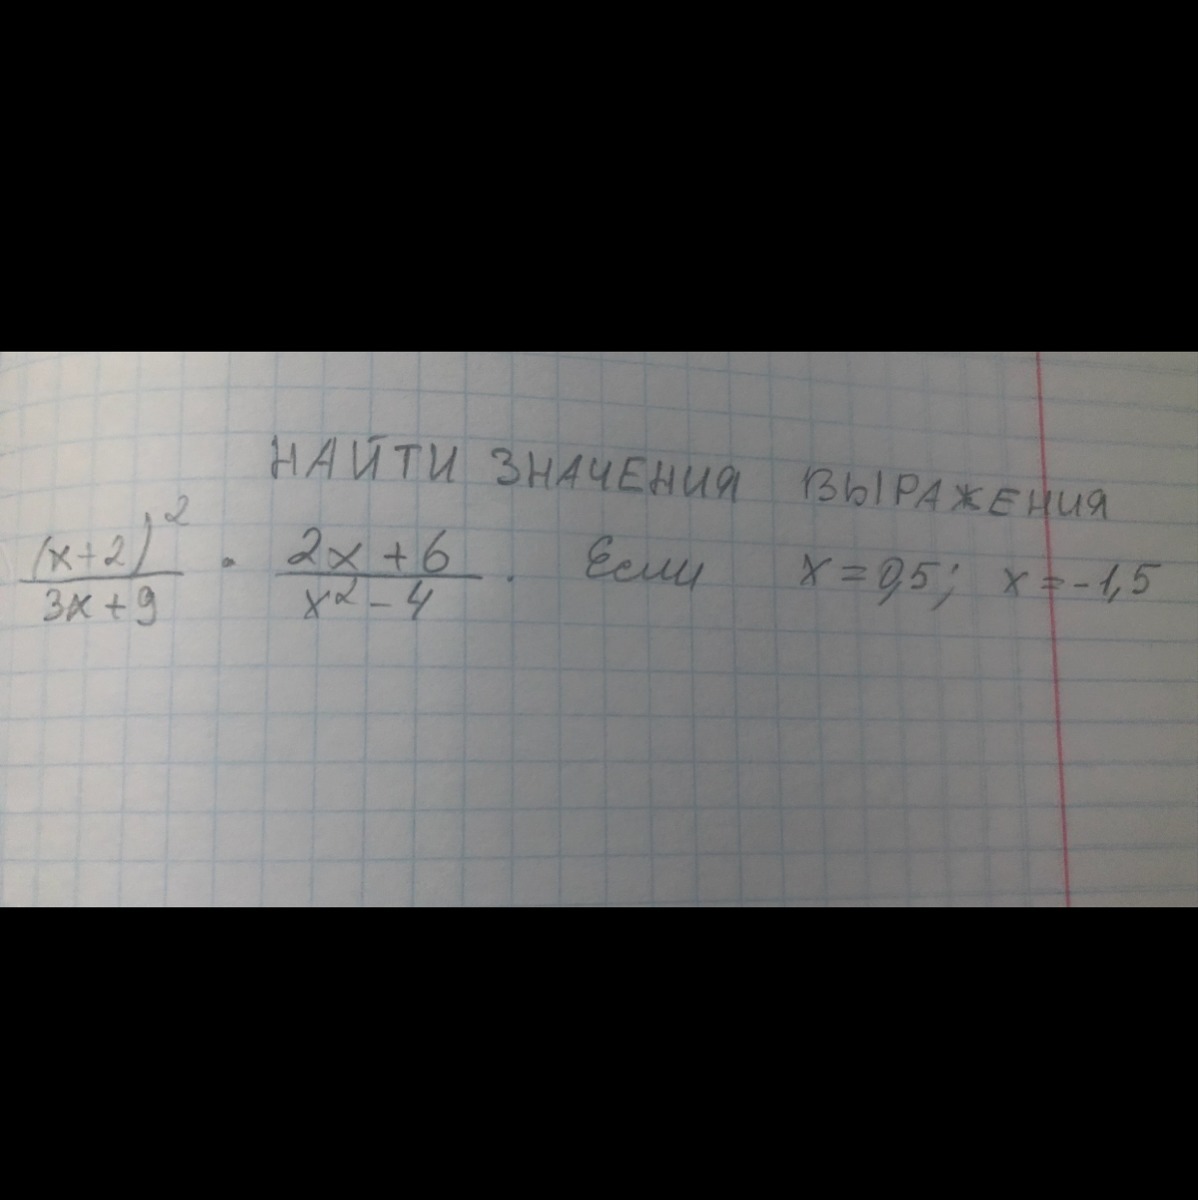 НАЙТИ ЗНАЧЕНИЯ ВЫРАЖЕНИЯ
(x+2)² / 3x+9 · 2x+6 / x²-4 . Если x=0,5; x=-1,5